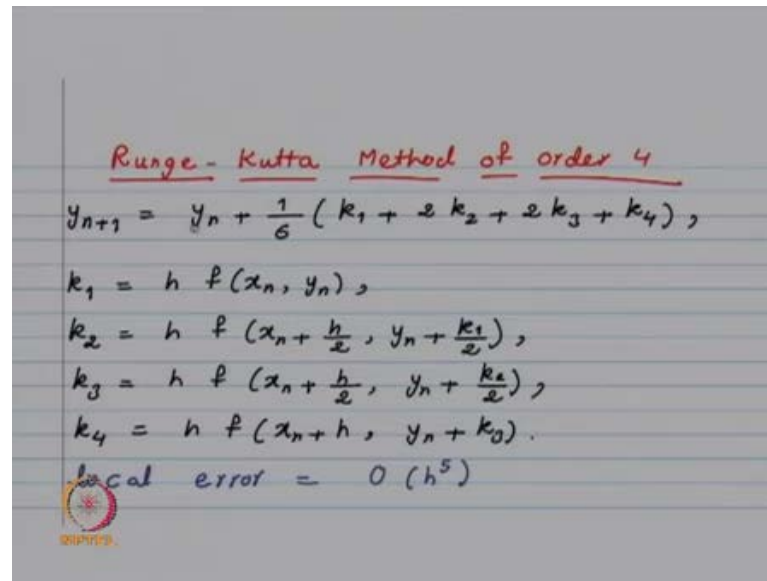 Runge - Kutta Method of order 4
yₙ₊₁ = yₙ + 1/6 ( k₁ + 2 k₂ + 2 k₃ + k₄ ) ,
k₁ = h f (xₙ, yₙ) ,
k₂ = h f (xₙ + h/2 , yₙ + k₁/2) ,
k₃ = h f (xₙ + h/2 , yₙ + k₂/2) ,
k₄ = h f (xₙ + h , yₙ + k₃) .
local error = O (h⁵)
NPTEL